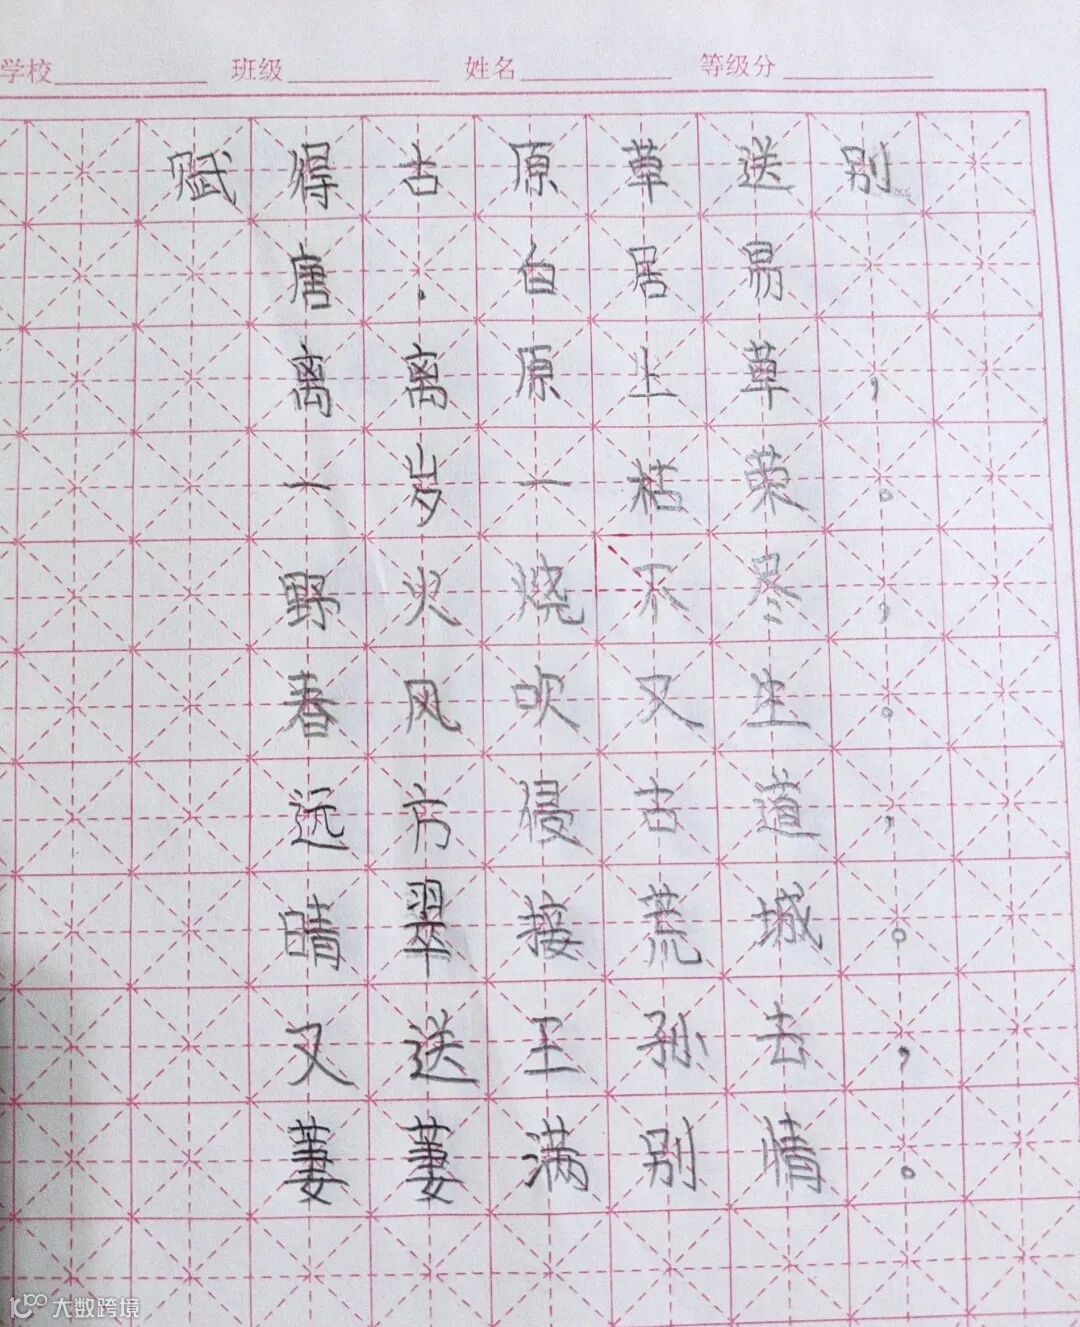 学校 班级 姓名 等级分
赋得古原草送别
唐·白居易
离离原上草，
一岁一枯荣。
野火烧不尽，
春风吹又生。
远方侵古道，
晴翠接荒城。
又送王孙去，
萋萋满别情。
大数跨境